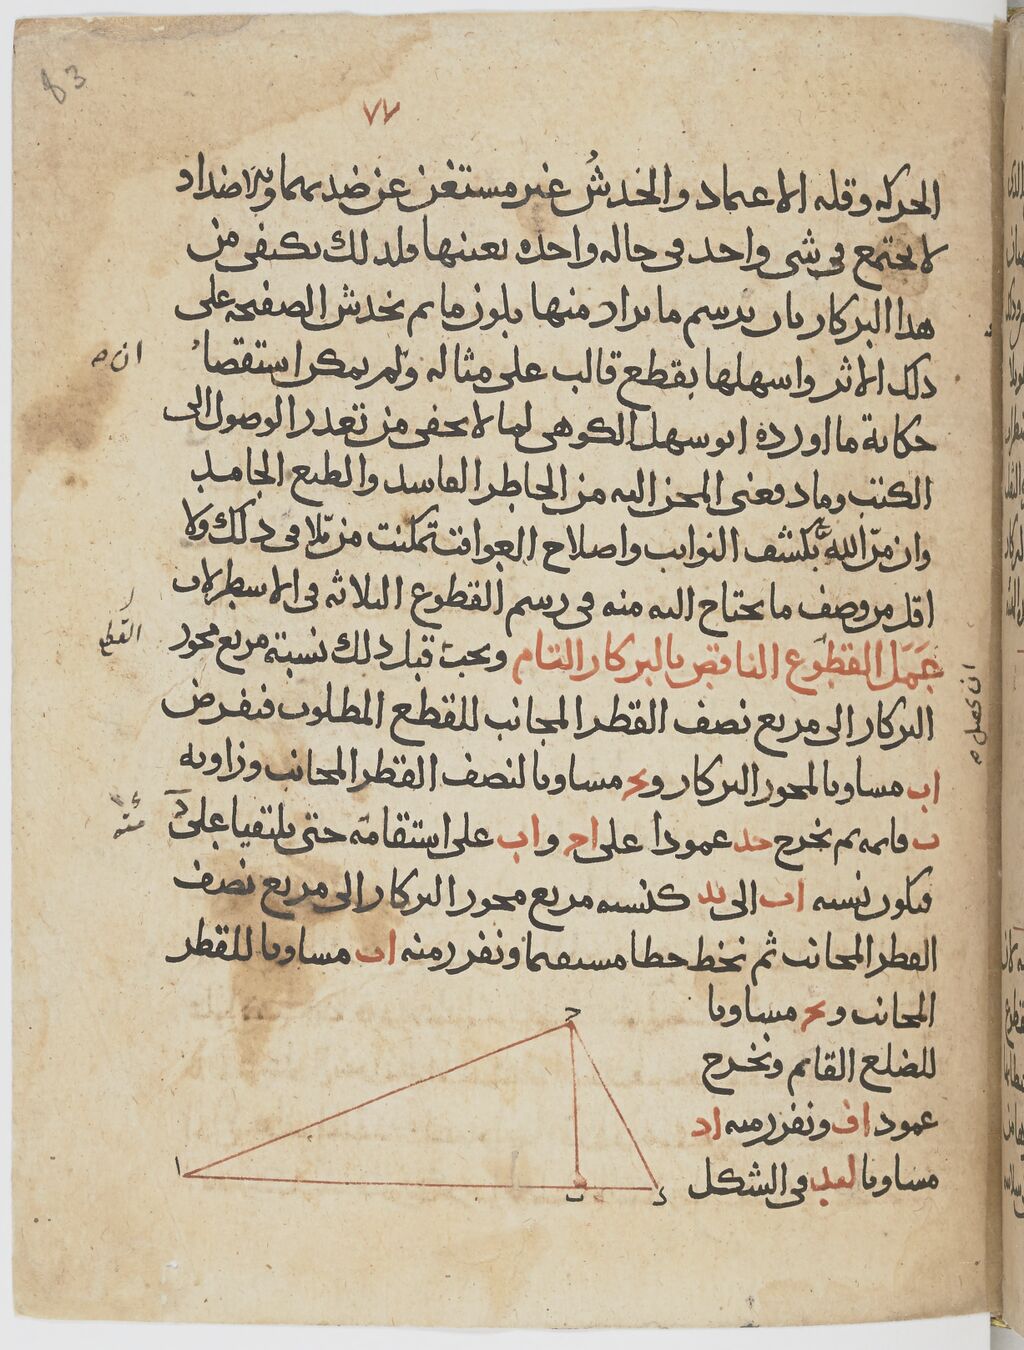 83
٧٧
الحركه وقله الاعماد والخدشُ غير مستغن عن ضديهما والاضداد
لا يجتمع فى شى واحد فى حاله واحده بعينها فلذلك يكتفى من
هذا البركار بان يرسم ما يراد منها بلون ما ثم يخدش الصفيحه على
ذلك الاثر واسهلها بقطع قالب على مثاله ولم يمكن استقصاء
ان ص
حكاية ما اورده ابو سهل الكوهى لما لا يخفى من تعذر الوصول الى
الكتب وما دفعنى المحن اليه من الخاطر الفاسد والطبع الجامد
وان منّ الله بكشف النوايب واصلاح العواقب تمكنت من ذلك ولا
اقل من وصف ما يحتاج اليه منه فى رسم القطوع الثلاثه فى الاسطرلاب
عمل القطوع الناقص بالبركار التام ويجب قبل ذلك نسبة مربع محور
القطع
البركار الى مربع نصف القطر المجانب للقطع المطلوب فنفرض
ان يحصل ص
اب مساويا لمحور البركار وبج مساويا لنصف القطر المجانب وزاويه
ب قايمه ثم نخرج جد عمودا على اج واب على استقامته حتى يلتقيا على د
فيكون نسبه اب الى بد كنسبه مربع محور البركار الى مربع نصف
القطر المجانب ثم نخط خطا مستقيما ونفرز منه اب مساويا للقطر
المجانب وبج مساويا
للضلع القايم ونخرج
عمود اف ونفرز منه اد
مساويا لبد فى الشكل
ج
ا
ب
د